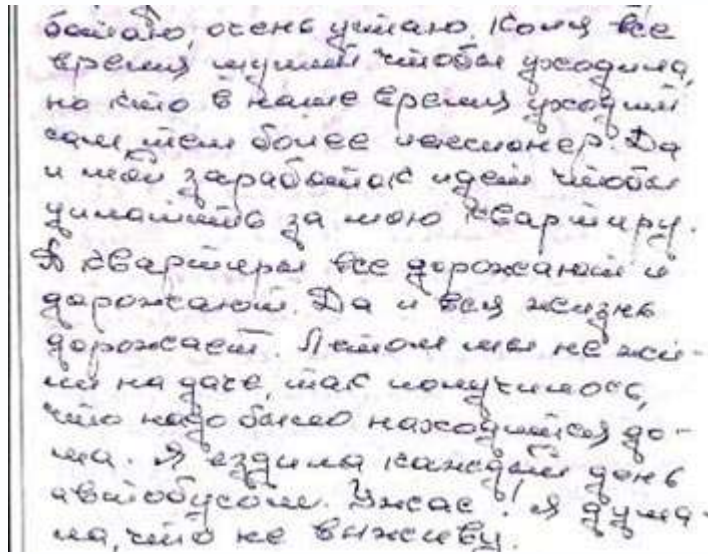 ботаю, очень устаю. Коля все
время шумит чтобы уходила,
но кто в наше время уходит
сам, тем более пенсионер. Да
и мой заработок идет чтобы
уплатить за мою квартиру.
А квартиры все дорожают и
дорожают. Да и вся жизнь
дорожает. Летом мы не жи-
ли на даче, так получилось,
что надо было находиться до-
ма. Я ездила каждый день
автобусом. Ужас! Я дума-
ла, что не выживу.